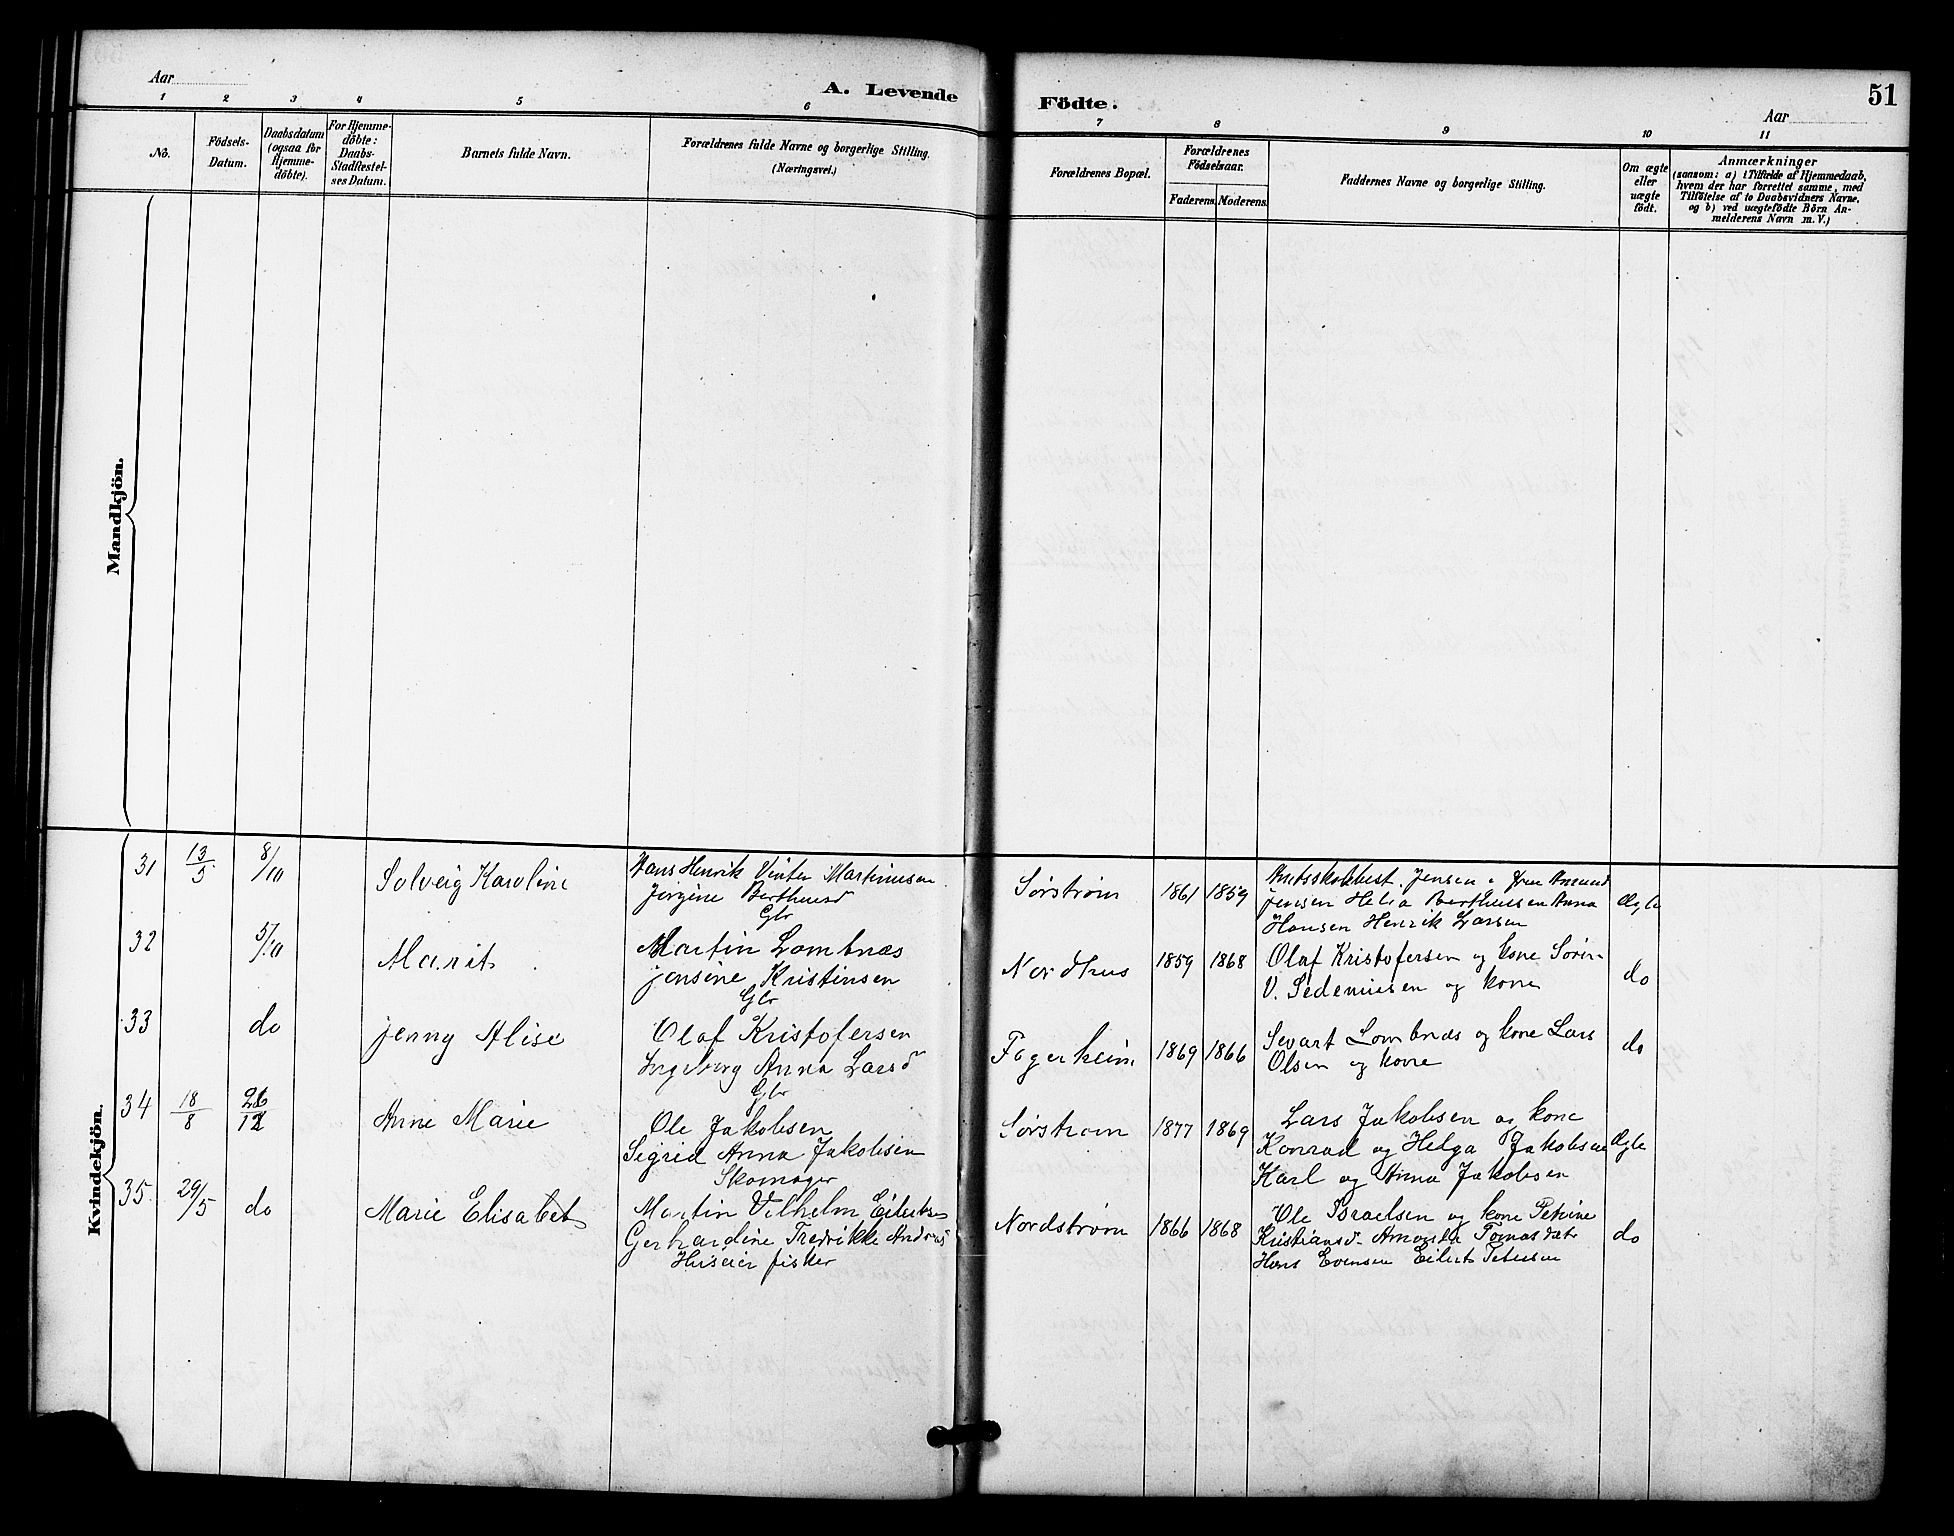 51
Aar
A. Levende
Födte.
Aar
1 2 3 4 5 6 7 8 9 10 11
No.
Födsels-
Datum.
Daabsdatum
(ogsaa for
Hjemme-
döbte).
For Hjemme-
döbte:
Daabs-
Stadfæstel-
ses Datum.
Barnets fulde Navn.
Forældrenes fulde Navne og borgerlige Stilling.
(Næringsvei.)
Forældrenes Bopæl.
Forældrenes
Födselsaar.
Faderens.
Moderens.
Faddernes Navne og borgerlige Stilling.
Om ægte
eller
uægte
födt.
Anmærkninger
(saasom: a) i Tilfælde af Hjemmedaab,
hvem der har forrettet samme, med
Tilföielse af to Daabsvidners Navne.
og b) ved uægtefödte Börn An-
melderens Navn m. V.)
Mandkjön.
Kvindekjön.
31 13/5 8/10 Solveig Karoline
Hans Henrik Vinter Martinusen
Jørgine Bertheusd
Gbr
Sørstrøm 1861 1859
Jensen frue Amund
Jensen Helia Berthussen Anna
Hansen Henrik Larsen
Ægte
32 5/10 Marit
Martin Lombnæs
Jensine Kristinsen
Gbr
Nordhus 1859 1868
Olaf Kristofersen og kone Søren
V. Sedeniusen og kone
do
33 do Jenny Alise
Olaf Kristofersen
Ingeborg Anna Larsd
Gbr
Fagerheim 1869 1866
Sevart Lombnæs og kone Lars
Olsen og kone
do
34 18/8 26/12 Anne Marie
Ole Jakobsen
Sigrid Anna Jakobsen
Skomager
Sørstrøm 1877 1869
Lars Jakobsen og kone
Konrad og Helga Jakobsen
Karl og Anna Jakobsen
Ægte
35. 29/5 do Marie Elisabet
Martin Vilhelm Eilertsen
Gerhardine Fredrikke Andreasd
Huseier fisker
Nordstrøm 1866 1868
Ole Israelsen og kone Petrine
Kristiansd. Amanda Tomasdatr
Hans Evensen Eilert Petersen
do